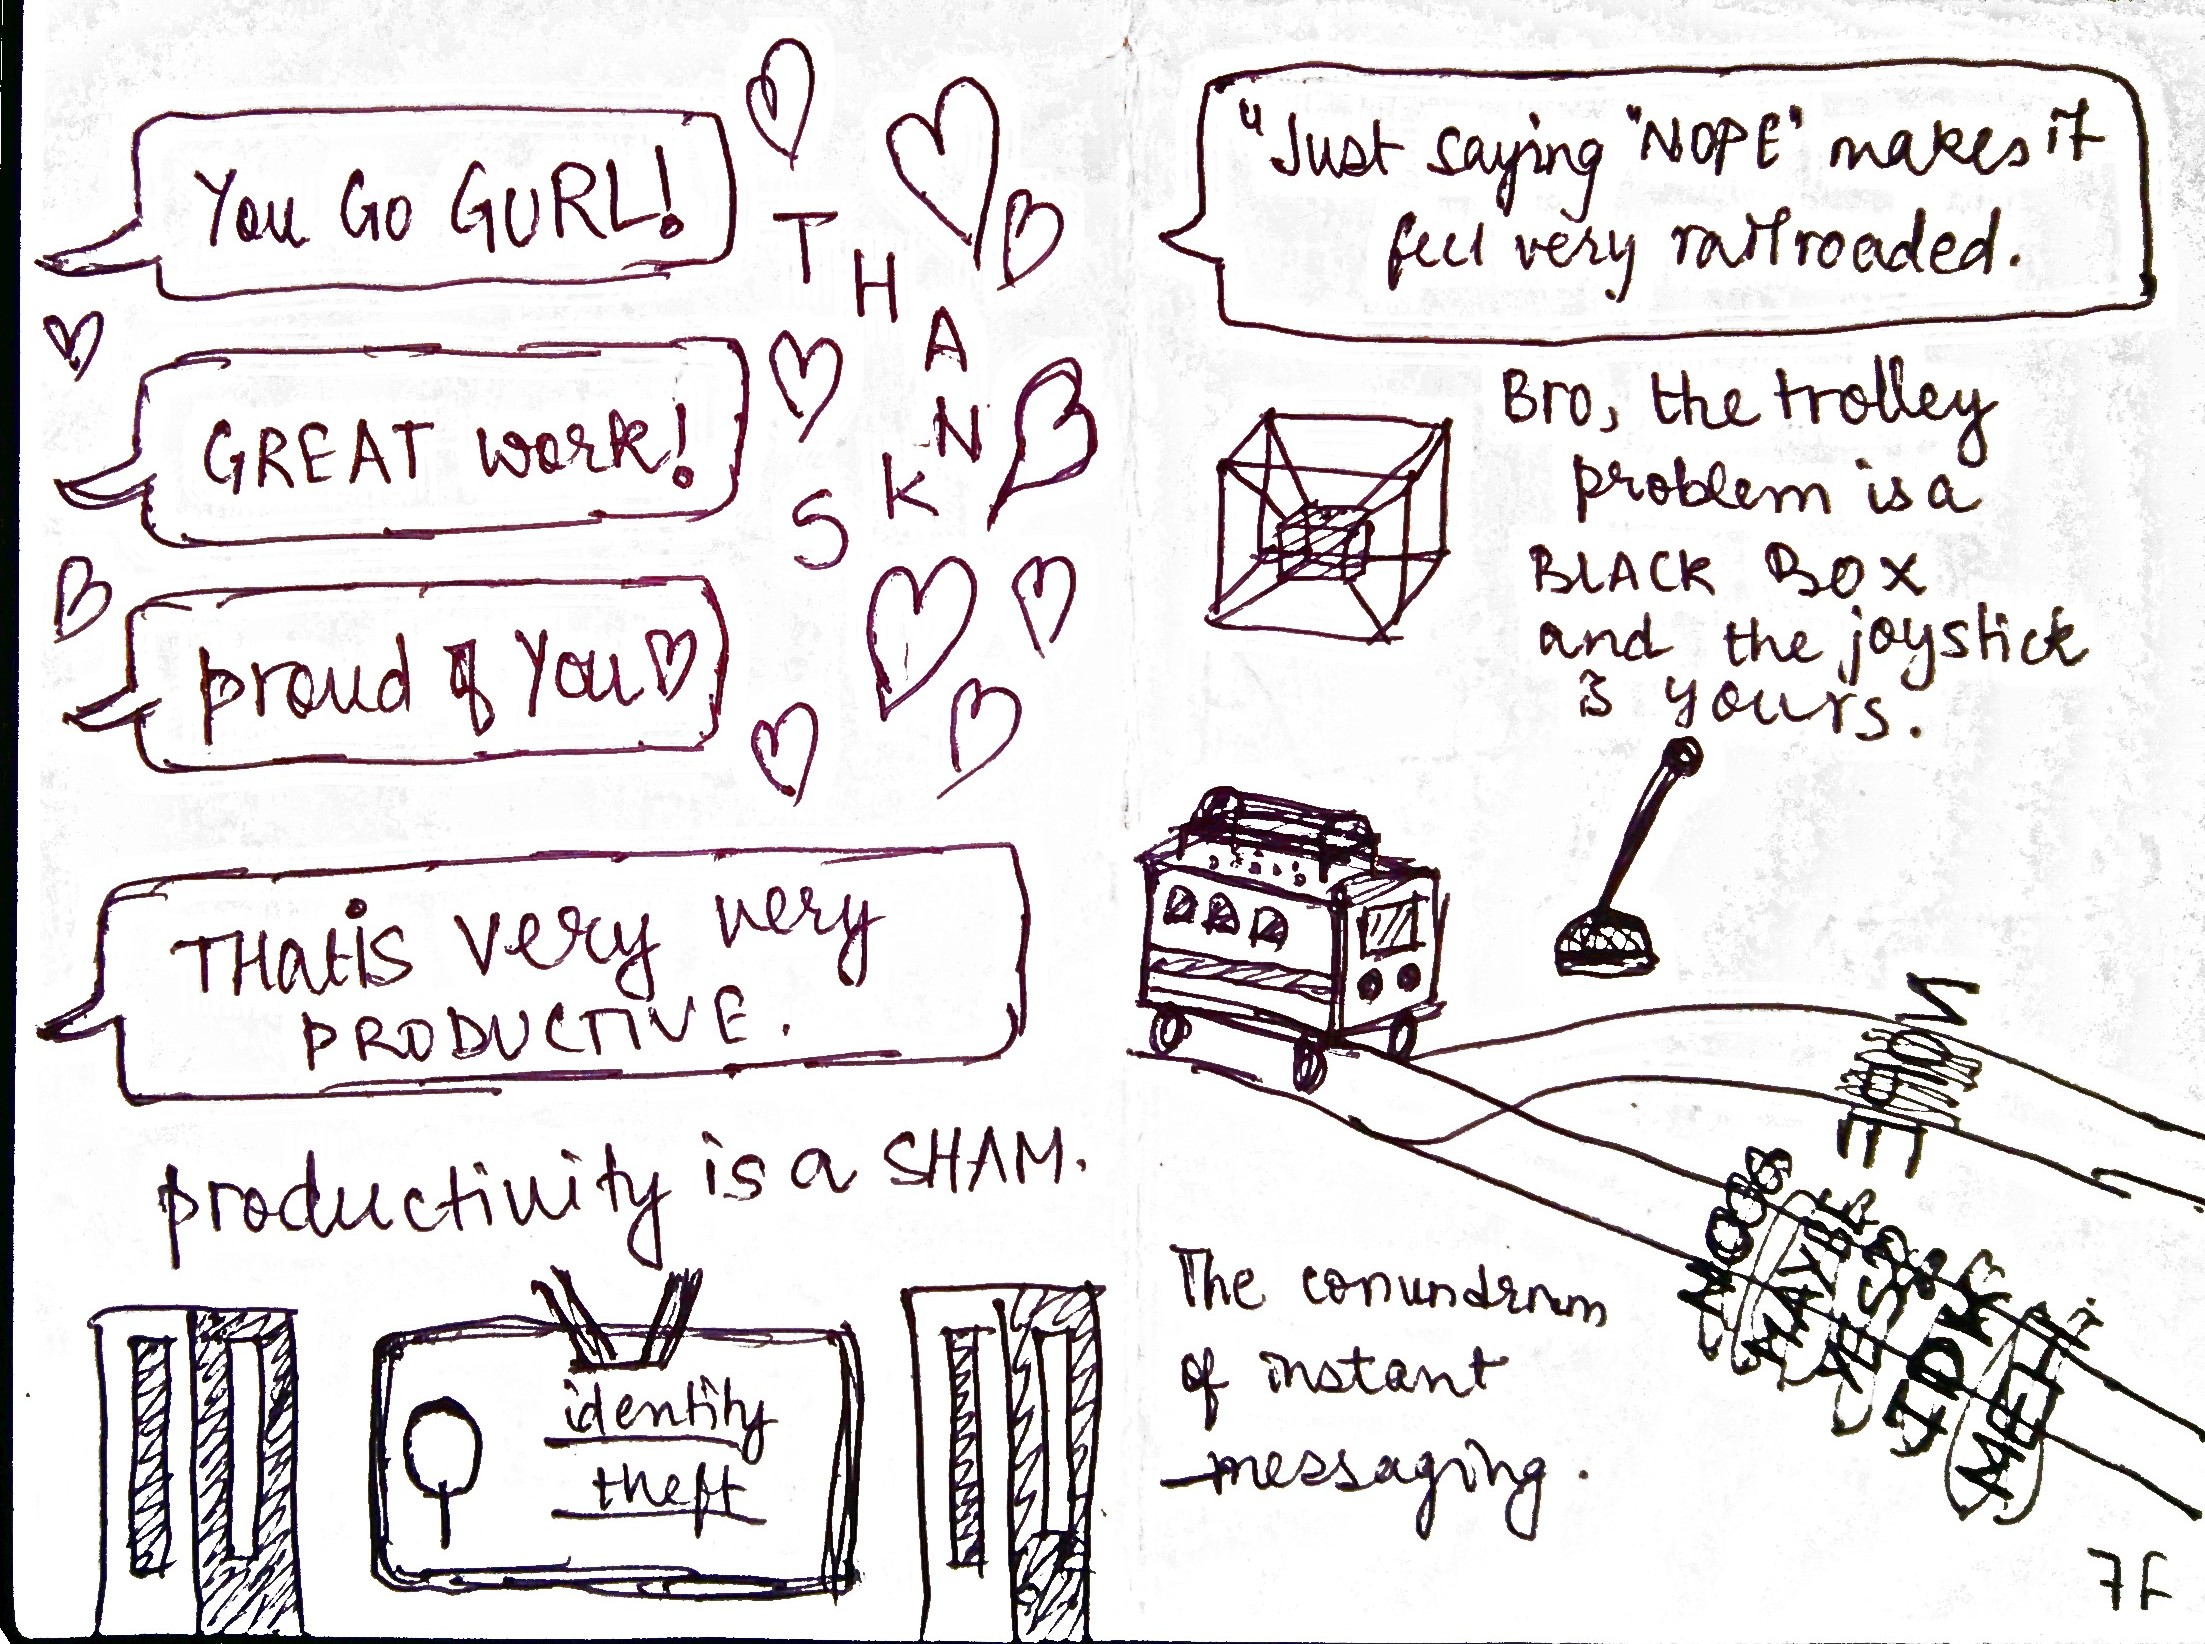 You Go GURL!
GREAT work!
proud of You
THANKS
THat is very very
PRODUCTIVE.
productivity is a SHAM.
identity
theft
"Just saying "NOPE" makes it
feel very railroaded.
Bro, the trolley
problem is a
BLACK BOX
and the joystick
is yours.
NOPE
MAYBE
YES?
IDK
MEH
The conundrum
of instant
messaging.
7F